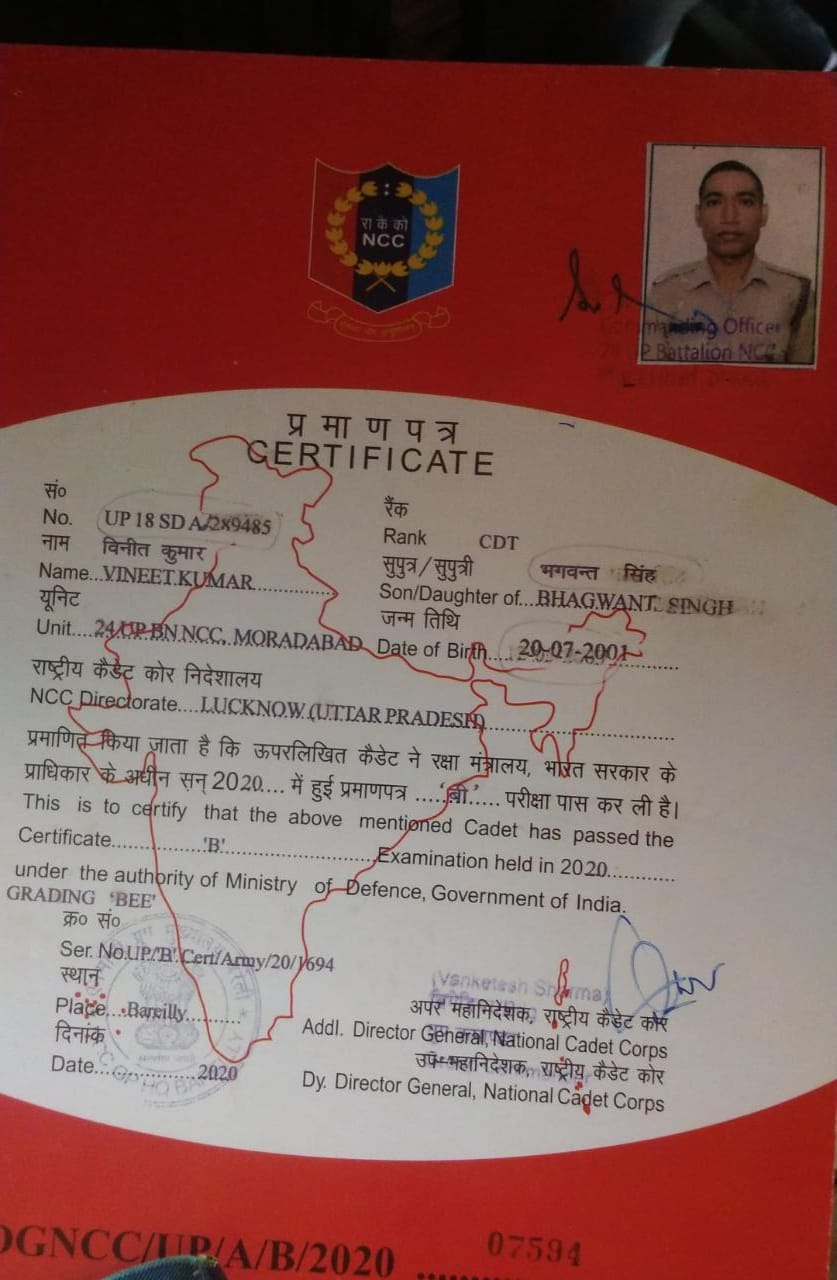 रा के को
NCC
Commanding Officer
UP Battalion NCC
प्रमाणपत्र
CERTIFICATE
सं०
No. UP 18 SD A/289485
रैंक
Rank CDT
नाम विनीत कुमार
Name...VINEET KUMAR..............
सुपुत्र/सुपुत्री भगवन्त सिंह
Son/Daughter of...BHAGWANT SINGH
यूनिट
Unit....24 UP BN NCC, MORADABAD
जन्म तिथि
Date of Birth....20-07-2001........
राष्ट्रीय कैडेट कोर निदेशालय
NCC Directorate....LUCKNOW (UTTAR PRADESH)...........................
प्रमाणित किया जाता है कि ऊपरलिखित कैडेट ने रक्षा मंत्रालय, भारत सरकार के
प्राधिकार के अधीन सन् 2020.... में हुई प्रमाणपत्र .....'बी'..... परीक्षा पास कर ली है।
This is to certify that the above mentioned Cadet has passed the
Certificate...............'B'........................Examination held in 2020...........
under the authority of Ministry of Defence, Government of India.
GRADING 'BEE'
क्र० सं०
Ser. No.UP/'B' Cert/Army/20/1694
स्थान
Place...Bareilly..........
दिनांक
Date.................2020
(Vanketesh Sharma)
अपर महानिदेशक, राष्ट्रीय कैडेट कोर
Addl. Director General, National Cadet Corps
उप महानिदेशक, राष्ट्रीय कैडेट कोर
Dy. Director General, National Cadet Corps
DGNCC/UP/A/B/2020 ........07594